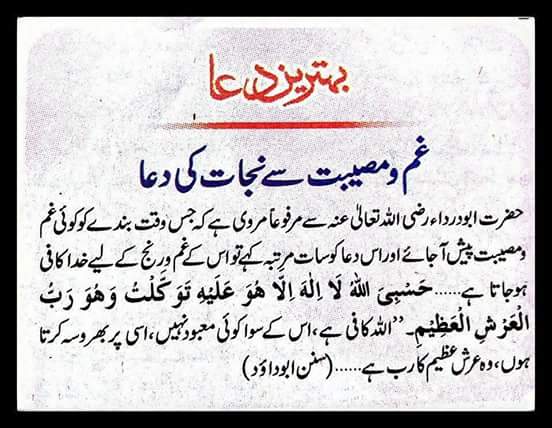 بہترین دعا
غم و مصیبت سے نجات کی دعا
حضرت ابودرداء رضی اللہ تعالیٰ عنہ سے مرفوعاً مروی ہے کہ جس وقت بندے کو کوئی غم
و مصیبت پیش آجائے اور اس دعا کو سات مرتبہ کہے تو اس کے غم و رنج کے لیے خدا کافی
ہوجاتا ہے...... حَسْبِیَ اللهُ لَا اِلٰهَ اِلَّا هُوَ عَلَیْهِ تَوَکَّلْتُ وَهُوَ رَبُّ
الْعَرْشِ الْعَظِیْمِ۔ ’’اللہ کافی ہے، اس کے سوا کوئی معبود نہیں، اسی پر بھروسہ کرتا
ہوں، وہ عرش عظیم کا رب ہے......(سنن ابوداؤد)